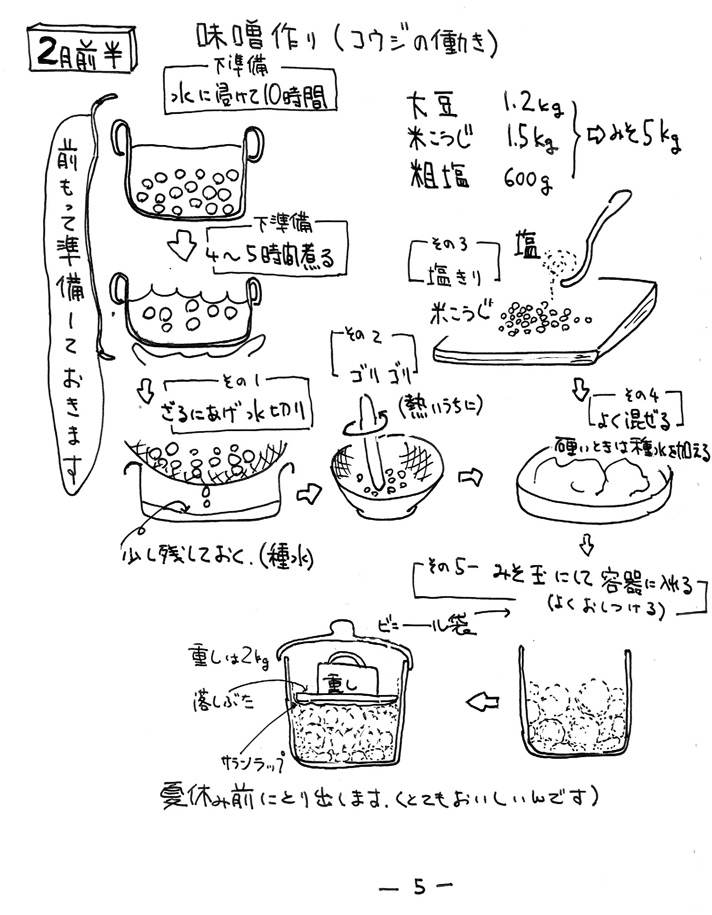 2月前半
味噌作り(コウジの働き)
下準備
水に浸けて10時間
大豆 1.2kg
米こうじ 1.5kg
粗塩 600g
⇨みそ5kg
前もって準備しておきます
下準備
4〜5時間煮る
その3
塩きり
塩
米こうじ
その1
ざるにあげ水切り
少し残しておく.(種水)
その2
ゴリゴリ
(熱いうちに)
その4
よく混ぜる
硬いときは種水を加える
その5 みそ玉にして容器に入れる
(よくおしつける)
ビニール袋
重しは2kg
重し
落しぶた
サランラップ
夏休み前にとり出します.(とてもおいしいんです)
— 5 —